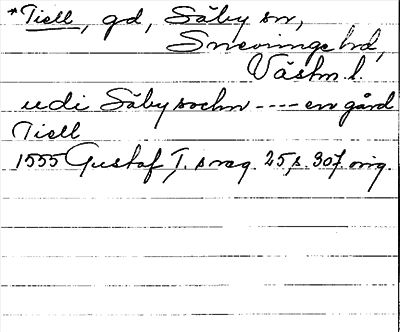 *Tiell, gd, Säby sn,
Snevringe hd,
Västm. l.
udi Säby sochn ---- en gård
Tiell
1555 Gustaf I. s reg. 25, s. 307. orig.